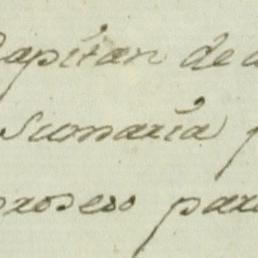 Capitan de
Sumaria
proseso para